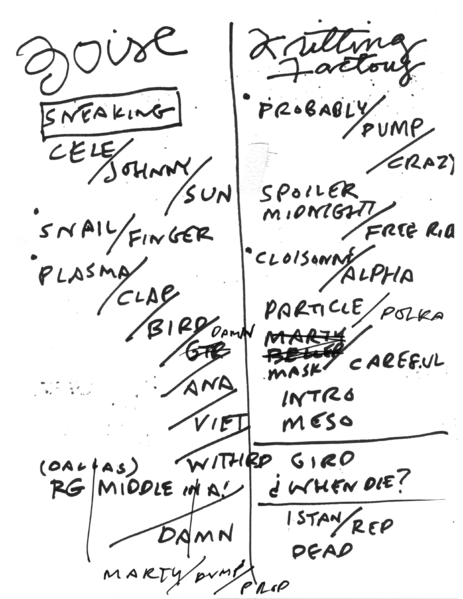 Boise
SNEAKING
CELE/
JOHNNY/
SUN
SNAIL/FINGER
PLASMA/
CLAP/
BIRD/
DAMN
GTR
ANA
VIET
(DALLAS) WITHRD
RG MIDDLE IN A!
DAMN
MARTY/DUMP/PROP
Knitting
Factory
PROBABLY/
PUMP/
CRAZY
SPOILER
MIDNIGHT/
FREE RID
CLOISONNE/
ALPHA
PARTICLE/POLKA
MARTY
MASK/CAREFUL
INTRO
MESO
GIRD
¿WHEN DIE?
ISTAN/REP
DEAD